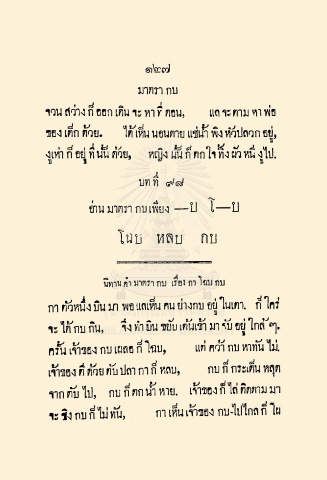 ๑๒๗
มาตรา กบ
จวน สว่าง ก็ ออก เดิน จะ หา ที่ ดอน, แล จะ ตาม หา พ่อ
ของ เด็ก ด้วย. ได้ เห็น นอน ตาย แช่ น้ำ พิง หัว ปลวก อยู่,
งูเห่า ก็ อยู่ ที่ นั้น ด้วย, หญิง นั้น ก็ ตก ใจ ทิ้ง ผัว หนี งู ไป.
บท ที่ ๙๘
อ่าน มาตรา กบ เพียง —บ โ—บ
โฉบ หลบ กบ
นิทาน คำ มาตรา กบ เรื่อง กา โฉบ กบ
กา ตัวหนึ่ง บิน มา พอ แลเห็น คน ย่าง กบ อยู่ ใน เตา. ก็ ใคร่
จะ ได้ กบ กิน, จึง ทำ บิน ขยับ เต้นเข้า มา จับ อยู่ ใกล้ ๆ.
ครั้น เจ้าของ กบ เผลอ ก็ โฉบ, แต่ คว้า กบ หา ทัน ไม่.
เจ้าของ ตี ด้วย ตับ ปลา กา ก็ หลบ, กบ ก็ กระเด็น หลุด
จาก ตับ ไป, กบ ก็ ตก น้ำ หาย. เจ้าของ ก็ ไล่ ติดตาม มา
จะ ชิง กบ ก็ ไม่ ทัน, กา เห็น เจ้าของ กบ ไป ไกล ก็ โผ